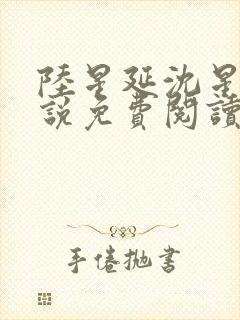 陸星延沈星
說免費閱讀
手倦抛書